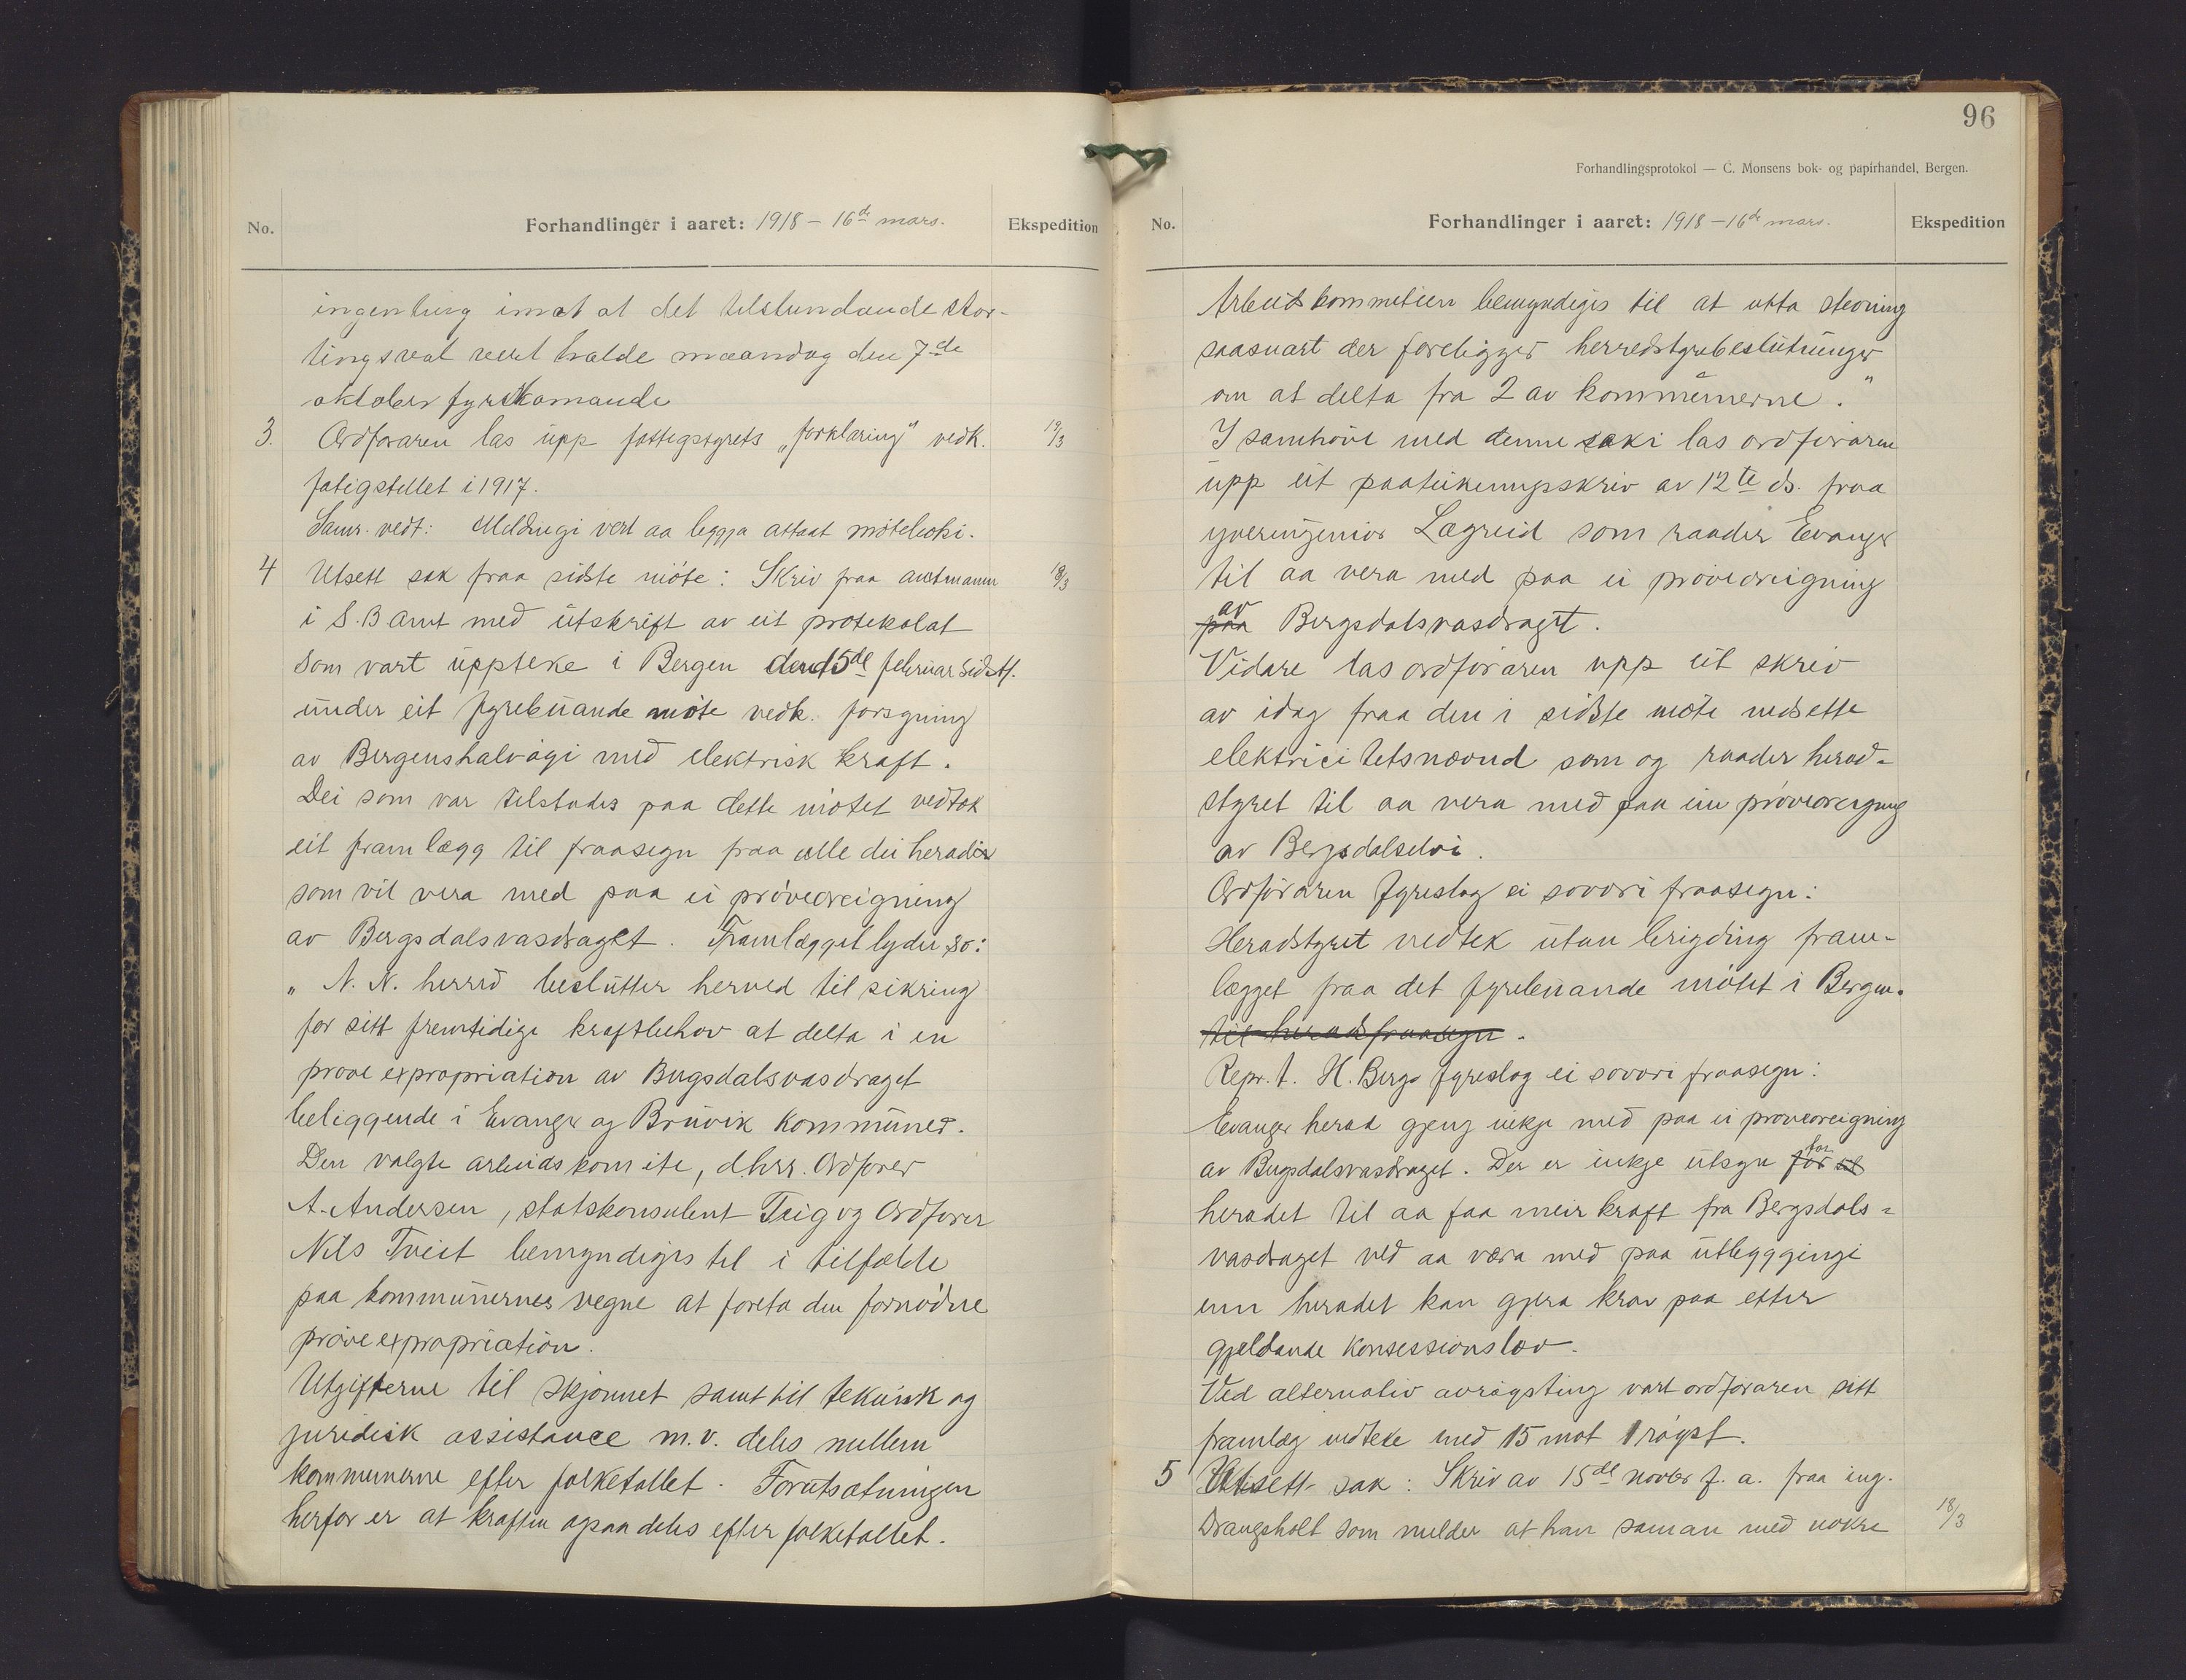 No. Forhandlinger i aaret: 1918 – 16de mars. Ekspedition
ingenting imot at det tilstundande stor-
tingsval vert halde maandag den 7de
oktober fyrikomande
3. Ordforaren las upp fattigstyrets „forklaring" vedk. 19/3
fatigstellet i 1917.
Samr. vedt: Meldingi vert aa leggja attaat møteboki.
4 Utsett sak fraa sidste møte: Skriv fraa amtmann 18/3
i S. B amt med útskrift av eit protokolat
som vart uppteke i Bergen den 15de februar sidstl.
under eit fyrebuande møte vedk. forsyning
av Bergenshalvøgi med elektrisk kraft.
Dei som var tilstades paa dette møtet vedtok
eit framlægg til fraasegn fraa alle dei herader
som vil vera med paa ei prøveoreigning
av Bergsdalsvasdraget. Framlægget lyder so:
„ N. N. herred beslutter herved til sikring
for sitt fremtidige kraftbehov at delta i en
prøve expropriation av Bergsdalsvasdraget
beliggende i Evanger og Bruvik kommuner.
Den valgte arbeidskomite, d.hrr. Ordfører
A. Andersen, statskonsulent Teig og Ordfører
Nils Tveit bemyndiges til i tilfælde
paa kommunernes vegne at foreta den fornødne
prøveexpropriation.
Utgifterne til skjønnet samt til teknisk og
juridisk assistance m.v. deles mellem
kommunerne efter folketallet. Forutsætningen
herfor er at kraften ogsaa deles efter folketallet.
96
Forhandlingsprotokol — C. Monsens bok- og papirhandel, Bergen.
No. Forhandlinger i aaret: 1918 – 16de mars. Ekspedition
Arbeidskommitéen bemyndiges til at utta stevning
saasnart der foreligger herredstyrebeslutninger
om at delta fra 2 av kommunerne."
I samhøve med denne saki las ordføraren
upp eit paatenkningsskriv av 12te ds. fraa
yveringeniør Lægreid som raader Evanger
til aa vera med paa ei prøveoreigning
paa av Bergsdalsvasdraget.
Vidare las ordføraren upp eit skriv
av idag fraa den i sidste møte nedsette
elektricitetsnævnd som og raader herad-
styret til aa vera med paa ein prøveoreigning
av Bergsdalselvi.
Ordføraren fyreslog ei sovori fraasegn:
Heradstyret vedtek utan brigding fram-
lægget fraa det fyrebuande møtet i Bergen.
til heradsfraasegn.
Repr. A. H. Berge fyreslog ei sovori fraasegn:
Evanger herad gjeng inkje med paa ei prøveoreigning
av Bergsdalsvasdraget. Der er inkje utsyn for for
heradet til aa faa meir kraft fra Bergsdals-
vasdraget ved aa væra med paa utleggingi
enn heradet kan gjera krav paa efter
gjeldande konsessionslov.
Ved alternativ avrøysting vart ordføraren sitt
framlæg vedteke med 15 mot 1 røyst.
5 Utsett sak: Skriv av 15de novbr f. a. fraa ing.
Drangsholt som melder at han saman med nokre 18/3